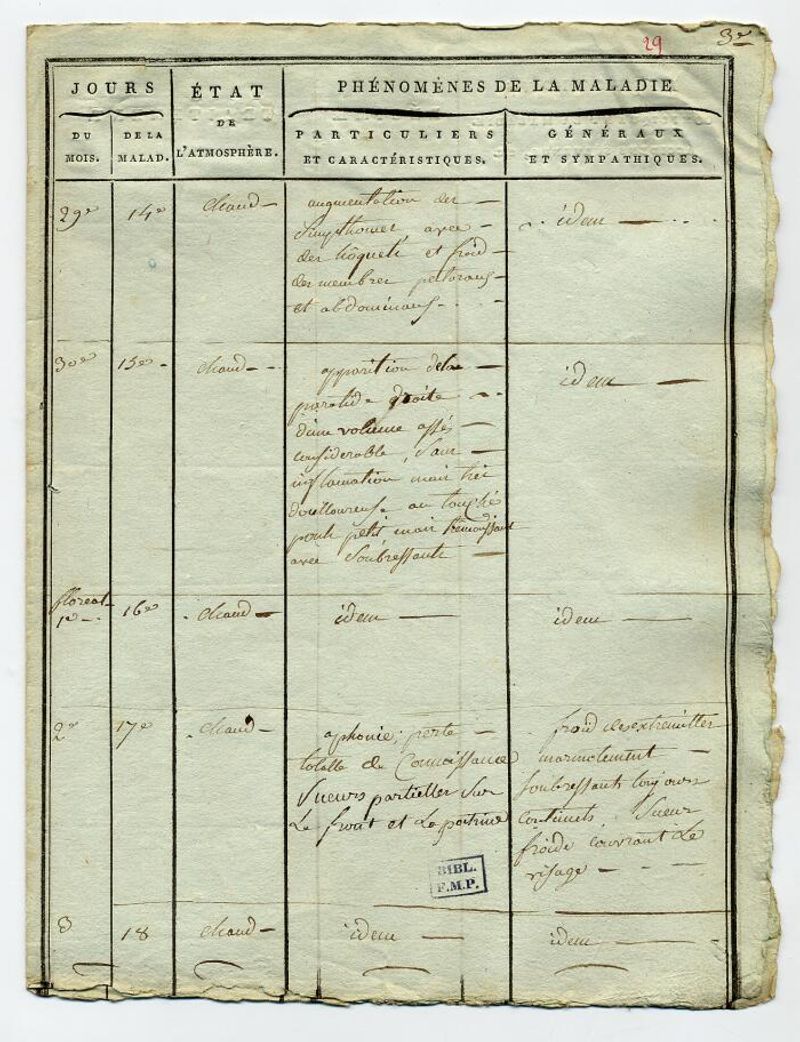 29
3e
JOURS
DU MOIS.
DE LA MALAD.
ÉTAT
DE
L'ATMOSPHÈRE.
PHÉNOMÈNES DE LA MALADIE
PARTICULIERS
ET CARACTÉRISTIQUES.
GÉNÉRAUX
ET SYMPATHIQUES.
29e 14e chaud
augmentation des
Simpthomes, avec
des hôquets et froid
des membres pectoraus
et abdominaus
idem
30e 15e chaud
apparition dela
parotide droite
d'une volume assés
considerable, sans
inflamation mais très
douilloureuse au touché
pouls petit mais
avec Soubressauts
idem
floreal
1e 16e chaud
idem
idem
2e 17e chaud
aphonie; perte
totalle de Connaissance
Sueurs partielles Sur
Le front et La poitrine
froid des extremittes
marmotement
Soubressauts toujours
continuels, Sueur
froide couvrant Le
visage
BIBL.
F.M.P.
3 18 chaud
idem
idem